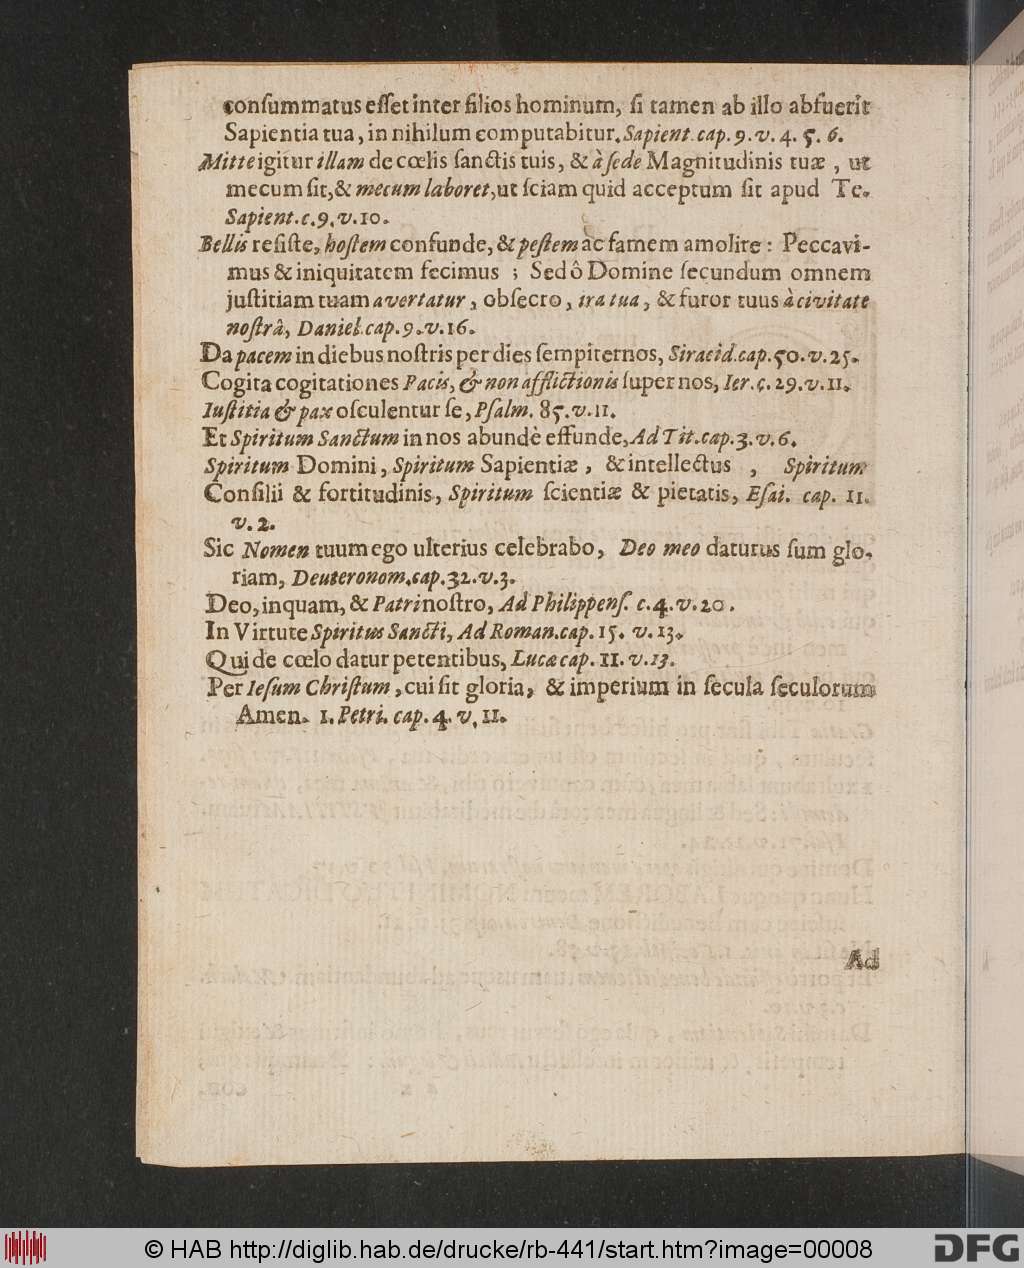 conſummatus eſſet inter filios hominum, ſi tamen ab illo abfuerit
Sapientia tua, in nihilum computabitur. Sapient. cap. 9. v. 4. 5. 6.
Mitte igitur illam de cœlis ſanctis tuis, & à ſede Magnitudinis tuæ, ut
mecum ſit, & mecum laboret, ut ſciam quid acceptum ſit apud Te.
Sapient. c. 9. v. 10.
Bellis reſiſte, hoſtem confunde, & peſtem ac famem amolire: Peccavi-
mus & iniquitatem fecimus; Sed ô Domine ſecundum omnem
juſtitiam tuam avertatur, obſecro, ira tua, & furor tuus à civitate
noſtrâ, Daniel. cap. 9. v. 16.
Da pacem in diebus noſtris per dies ſempiternos, Siracid. cap. 50. v. 25.
Cogita cogitationes Pacis, & non afflictionis ſuper nos, Ier. c. 29. v. 11.
Iuſtitia & pax oſculentur ſe, Pſalm. 85. v. 11.
Et Spiritum Sanctum in nos abundè effunde, Ad Tit. cap. 3. v. 6.
Spiritum Domini, Spiritum Sapientiæ, & intellectus, Spiritum
Conſilii & fortitudinis, Spiritum ſcientiæ & pietatis, Eſai. cap. 11.
v. 2.
Sic Nomen tuum ego ulterius celebrabo, Deo meo daturus ſum glo-
riam, Deuteronom. cap. 32. v. 3.
Deo, inquam, & Patri noſtro, Ad Philippenſ. c. 4. v. 20.
In Virtute Spiritus Sancti, Ad Roman. cap. 15. v. 13.
Qui de cœlo datur petentibus, Lucæ cap. 11. v. 13.
Per Ieſum Chriſtum, cui ſit gloria, & imperium in ſecula ſeculorum
Amen. 1. Petri. cap. 4. v. 11.
Ad
© HAB http://diglib.hab.de/drucke/rb-441/start.htm?image=00008
DFG